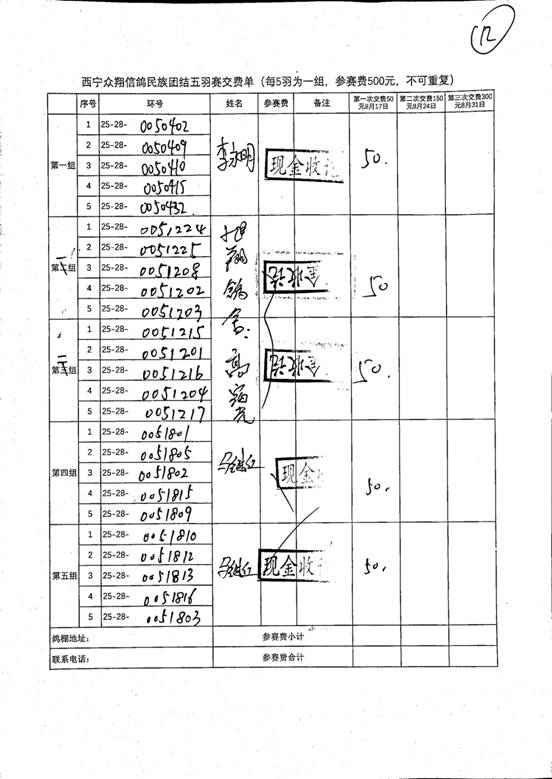 ⑫
西宁众翔信鸽民族团结五羽赛交费单（每5羽为一组，参赛费500元，不可重复）
序号 环号 姓名 参赛费 备注 第一次交费50元8月17日 第二次交费150元8月24日 第三次交费300元8月31日
第一组 李永明 现金收讫 50.
1 25-28- 0050402
2 25-28- 0050409
3 25-28- 0050410
4 25-28- 0050415
5 25-28- 0050432
第二组 翔鸽舍: 高 50
1 25-28- 0051224
2 25-28- 0051225
3 25-28- 0051208
4 25-28- 0051202
5 25-28- 0051203
第三组 50.
1 25-28- 0051215
2 25-28- 0051201
3 25-28- 0051216
4 25-28- 0051204
5 25-28- 0051217
第四组 现金 50.
1 25-28- 0051801
2 25-28- 0051805
3 25-28- 0051802
4 25-28- 0051815
5 25-28- 0051809
第五组 现金收 50.
1 25-28- 0051810
2 25-28- 0051812
3 25-28- 0051813
4 25-28- 0051816
5 25-28- 0051803
鸽棚地址: 参赛费小计
联系电话: 参赛费合计